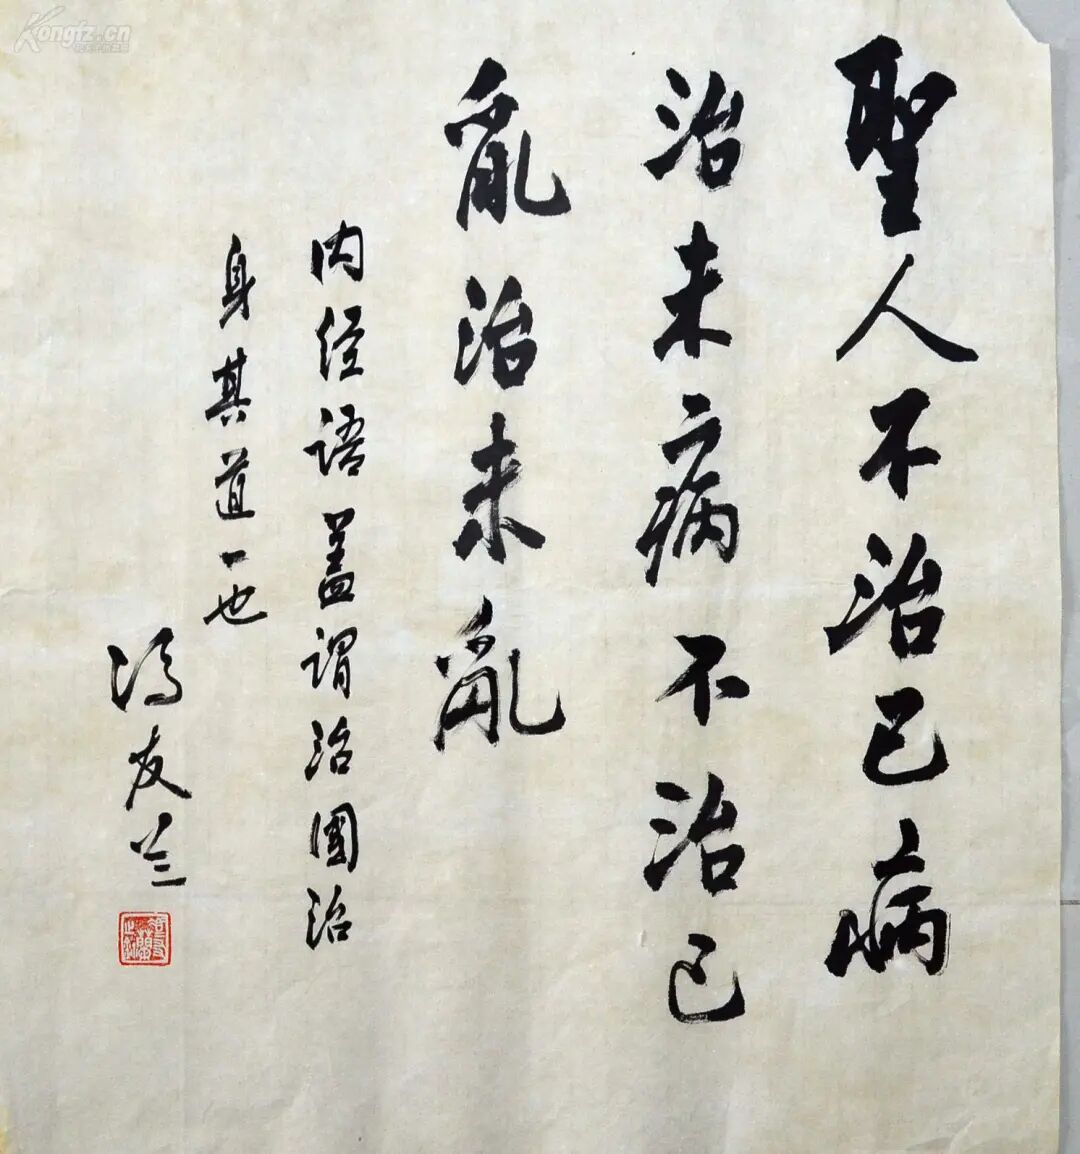 聖人不治已病
治未病不治已
亂治未亂
内经语蓋謂治國治
身其道一也
冯友兰
Kongfz.cn